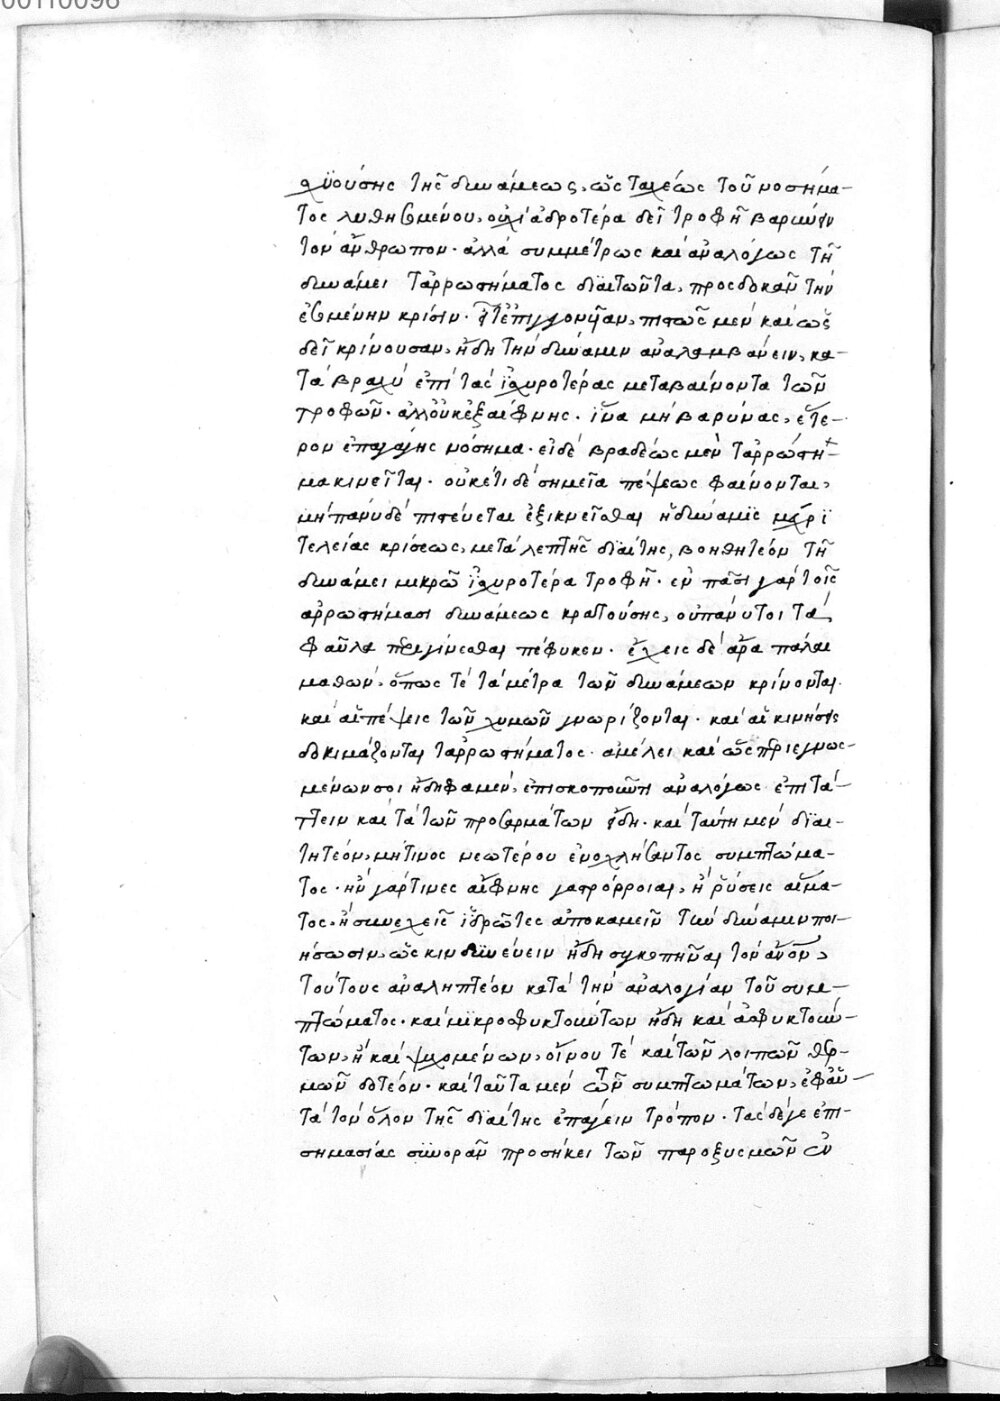 00110098
χϋούσης τῆς δυνάμεως, ὡς ταχέως τοῦ νοσήμα-
τος λυθησομένου, οὐχὶ ἁδροτέρα δεῖ τροφῆ βαρύνειν
τὸν ἄνθρωπον· ἀλλὰ συμμέτρως καὶ ἀναλόγως τῆ
δυνάμει τἀρρωστήματος διαιτῶντα, προσδοκᾶν τὴν
ἐσομένην κρίσιν· πιστῶς μὲν καὶ ὡς
δεῖ κρίνουσαν, ἤδη τὴν δύναμιν ἀναλαμβάνειν, κα-
τὰ βραχὺ ἐπὶ τὰς ἰσχυροτέρας μεταβαίνοντα τῶν
τροφῶν· ἀλλ' οὐκ ἐξαίφνης· ἵνα μὴ βαρύνας, ἕτε-
ρον ἐπαγάγης νόσημα· εἰ δὲ βραδέως μὲν τἀρρώστη-
μα κινεῖται· οὐκέτι δὲ σημεῖα πέψεως φαίνονται,
μὴ πάνυ δὲ πιστεύεται ἐξικνεῖσθαι ἡ δύναμις μέχρι
τελείας κρίσεως, μετὰ λεπτῆς διαίτης, βοηθητέον τῆ
δυνάμει μικρῶ ἰσχυροτέρα τροφῆ· ἐν πᾶσι γὰρ τοῖς
ἀρρωστήμασι δυνάμεως κρατούσης, οὐ πάνυ τοι τὰ
φαῦλα περιγίνεσθαι πέφυκεν· ἔχεις δὲ ἄρα πάλαι
μαθών, ὅπως τὲ τὰ μέτρα τῶν δυνάμεων κρίνονται·
καὶ αἱ πέψεις τῶν χυμῶν γνωρίζονται· καὶ αἱ κινήσεις
δοκιμάζονται τἀρρωστήματος· ἀμέλει καὶ ὡς περιεγνωσ-
μένων σοι ἤδη φαμὲν, ἐπισκοποῦντι ἀναλόγως ἐπιτά-
ττειν καὶ τὰ τῶν προσαρμάτων εἴδη· καὶ ταύτη μὲν διαι-
τητέον, μή τινος νεωτέρου ἐνοχλήσαντος συμπτώμα-
τος· ἢν γάρ τινες αἴφνης γαστρόρροιαι, ἢ ῥύσεις αἵμα-
τος, ἢ συνεχεῖς ἱδρῶτες ἀποκαμεῖν τὴν δύναμιν ποι-
ήσωσιν, ὡς κινδυνεύειν ἤδη συγκοπῆναι τὸν ἄνον,
τούτους ἀναληπτέον κατὰ τὴν ἀναλογίαν τοῦ συμ-
πτώματος· καὶ μικροσφυκτούντων ἤδη καὶ ἀσφυκτούν-
των, ἢ καὶ ψυχομένων, οἴνου τὲ καὶ τῶν λοιπῶν θερ-
μῶν δοτέον· καὶ ταῦτα μὲν ὄντων συμπτωμάτων, ἐφ' αὑ-
τὰ τὸν ὅλον τῆς διαίτης ἐπάγειν τρόπον· τὰς δέ γε ἐπι-
σημασίας συνορᾶν προσήκει τῶν παροξυσμῶν ἐν